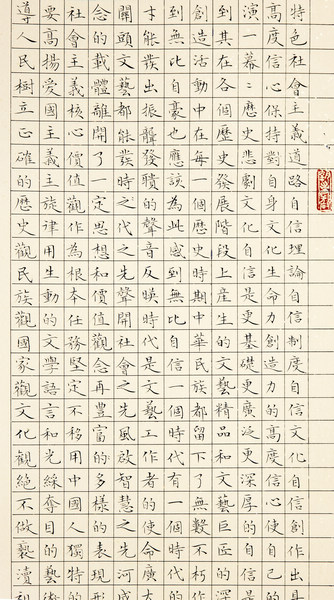 特色社會主義道路自信理論自信制度自信文化自信創作出
高度信心保持對自身文化生命力創造力更高度信心使自己
演一幕々歷史悲劇文化自信是更基礎更廣泛更深厚的自信是
到在各個歷史發展階段上產生的文藝精品和文藝巨匠
創造活動中也在每一個歷史時期中華民族都留下了無數不朽的
到無比自豪也應該為此感到無比自信一個時代有一個時代
才能發出振聾發聵的聲音反映時代是文藝工作者的使命廣大
開頭文藝發時代之先聲開社會之先風啟智慧之先河成
念的載體離開了一定思想和價值觀念再豐富多樣的表現形
社會主義核心價值觀作為根本任務堅定不移用中國人獨特的
要高揚愛國主義主旋律用生動的文學語言和光綵奪目的藝術
導人民樹立正確的歷史觀民族觀國家觀文化觀絕不做褻瀆